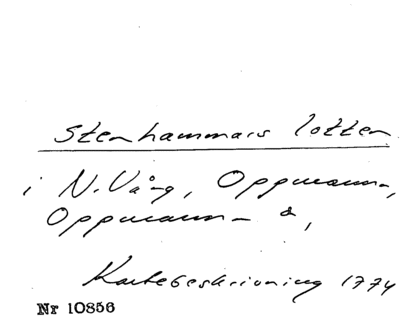 Stenhammars lotten
i N. Vång, Oppmanna-,
Oppmanna- &,
Kartebeskrivning 1774
Nr 10856